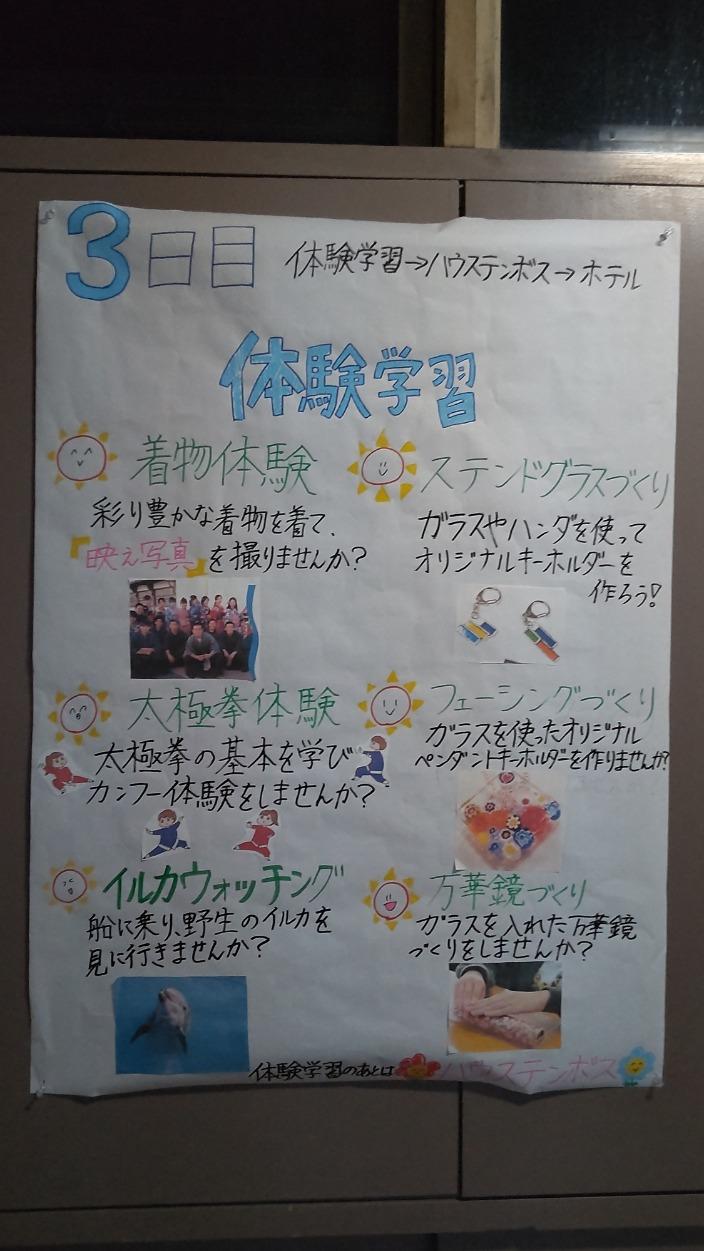 3日目
体験学習→ハウステンボス→ホテル
体験学習
着物体験
彩り豊かな着物を着て、
『映え写真』を撮りませんか?
ステンドグラスづくり
ガラスやハンダを使って
オリジナルキーホルダーを
作ろう!
太極拳体験
太極拳の基本を学び
カンフー体験をしませんか?
フュージングづくり
ガラスを使ったオリジナル
ペンダントキーホルダーを作りませんか?
イルカウォッチング
船に乗り、野生のイルカを
見に行きませんか?
万華鏡づくり
ガラスを入れた万華鏡
づくりをしませんか?
体験学習のあとは ハウステンボス